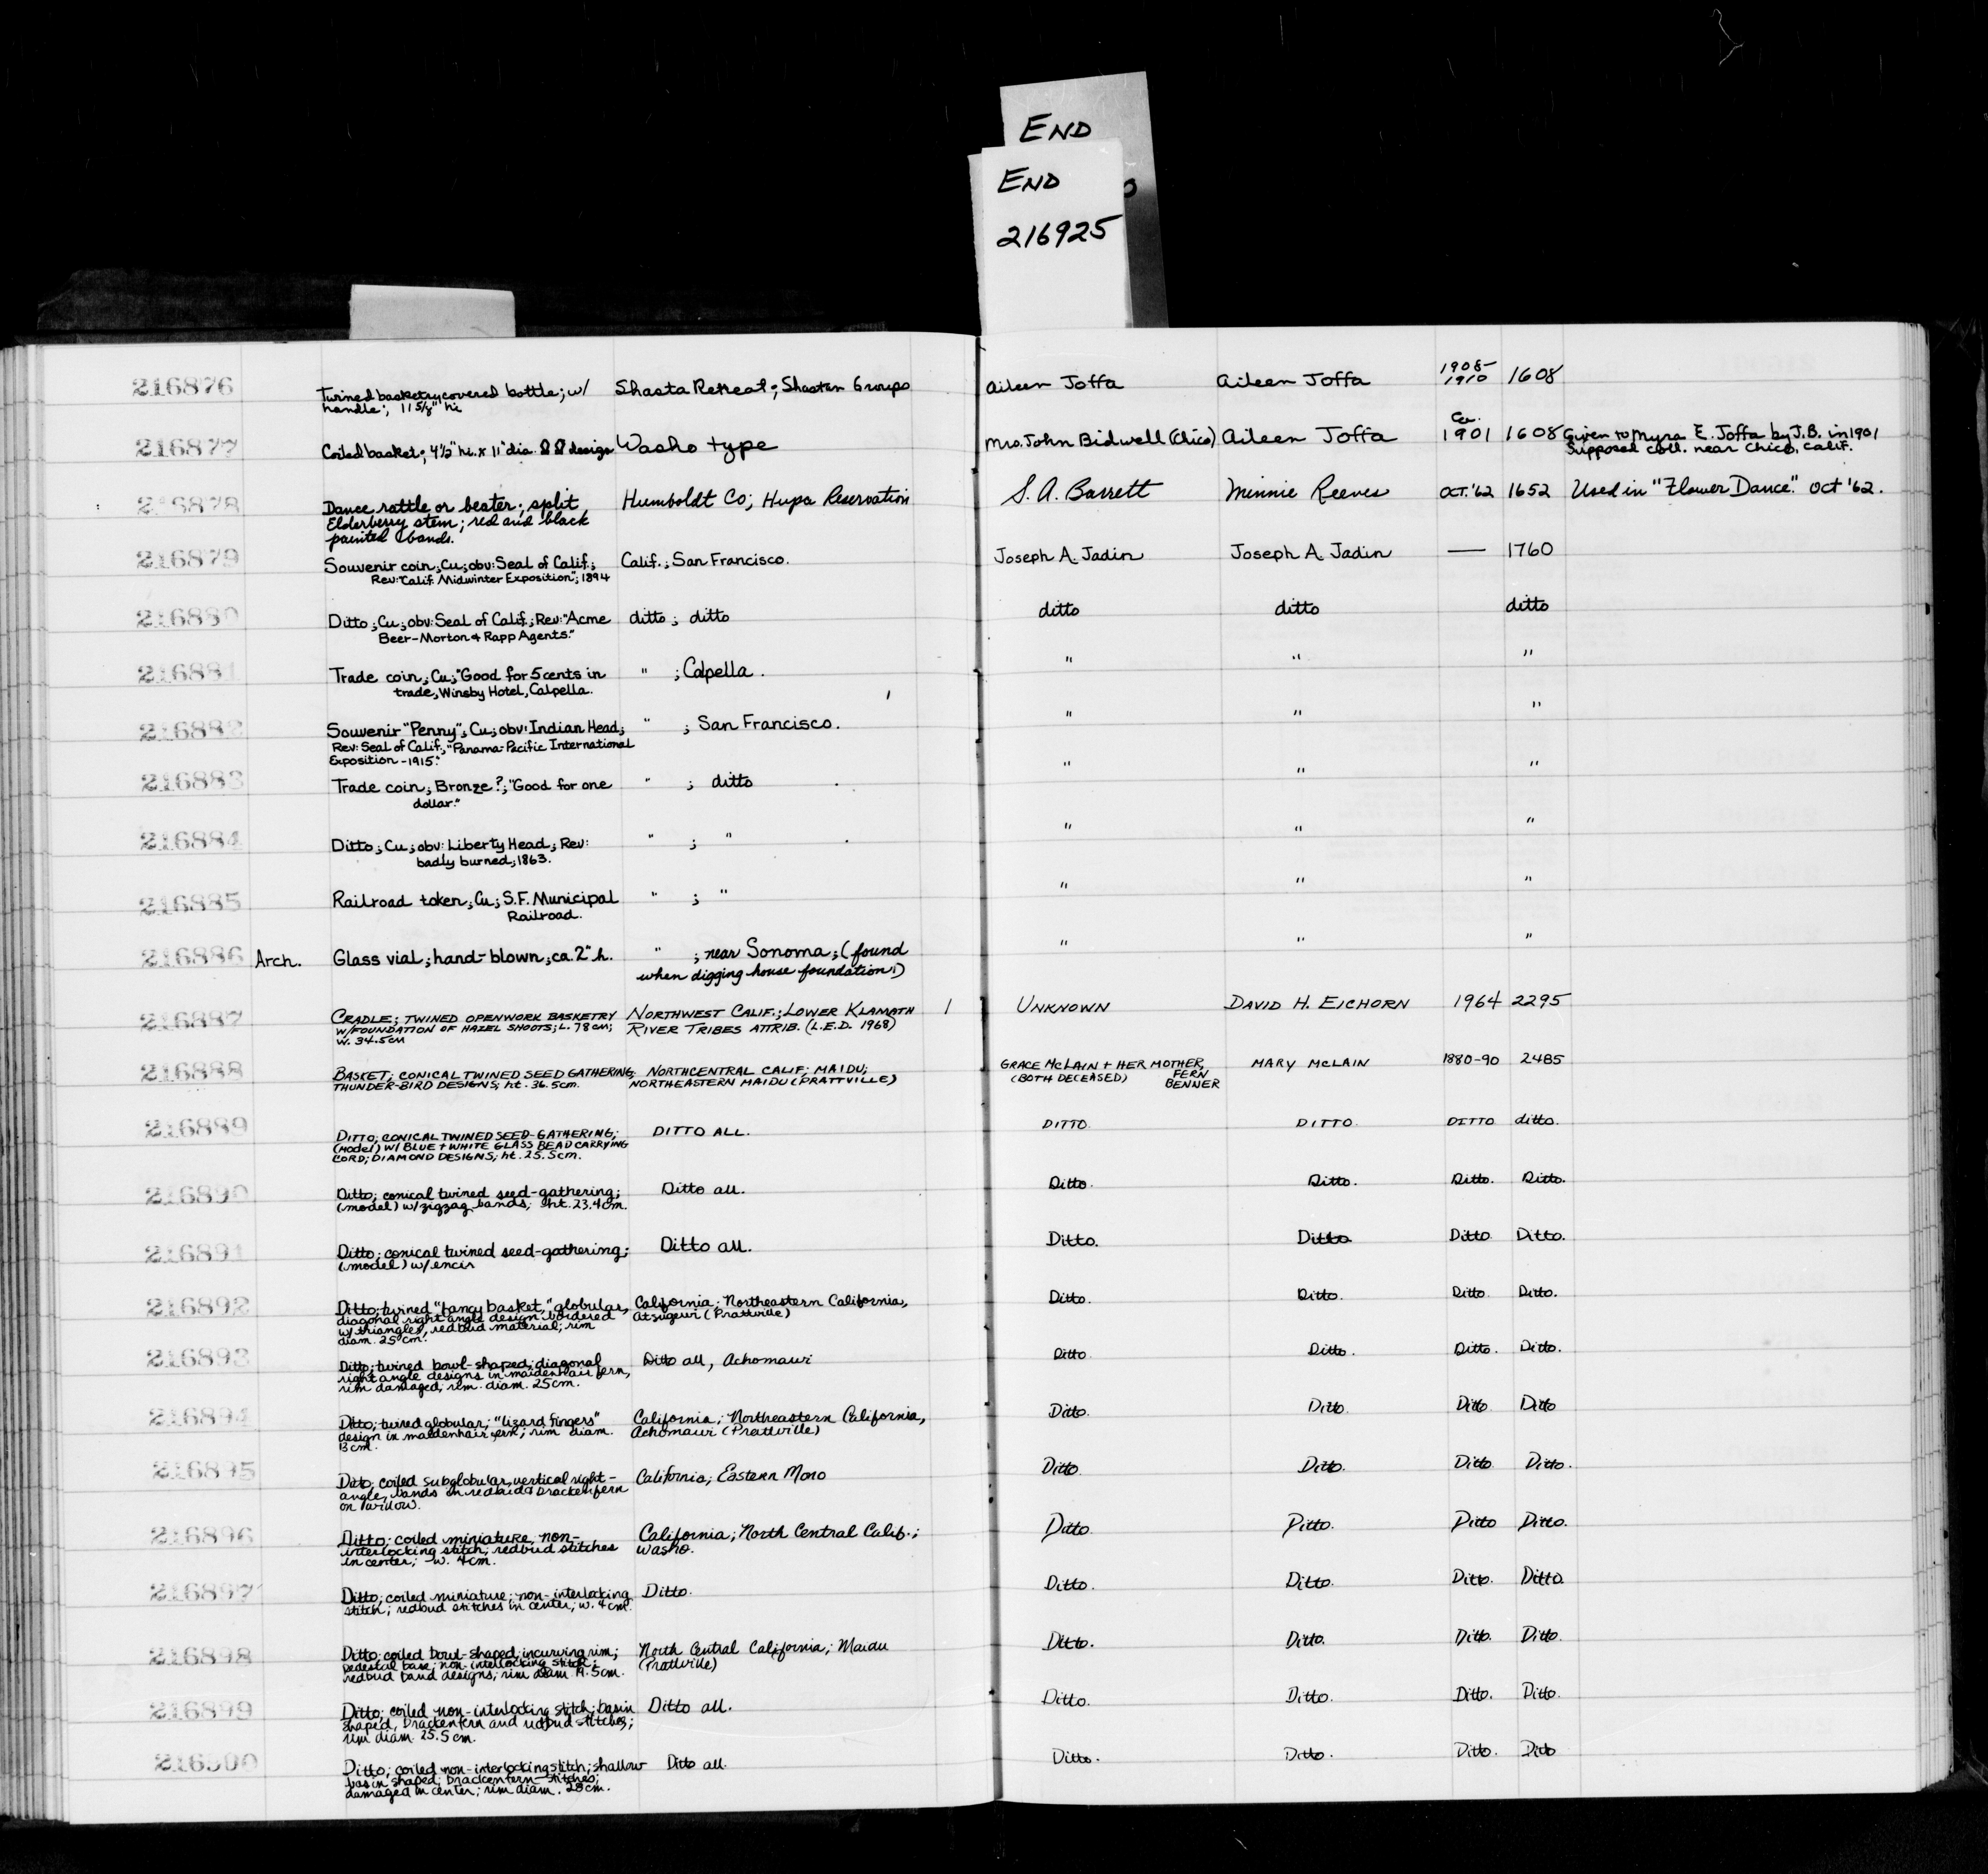 END
END
216925
216876 Twined basketry covered bottle; w/ Shasta Retreat; Shastan Groups Aileen Joffa Aileen Joffa 1908- 1608
handle; 11 5/8" hi 1910
216877 Coiled basket; 4½" hi. x 11" dia. design Washo type Mrs. John Bidwell (Chico) Aileen Joffa Ca. 1901 1608 Given to Myra E. Joffa by J.B. in 1901
Supposed coll. near Chico, Calif.
216878 Dance rattle or beater; split Humboldt Co; Hupa Reservation S. A. Barrett Minnie Reeves OCT. '62 1652 Used in "Flower Dance." Oct '62.
Elderberry stem; red and black
painted bands.
216879 Souvenir coin; Cu; obv: Seal of Calif.; Calif.; San Francisco. Joseph A. Jadin Joseph A. Jadin — 1760
Rev: "Calif. Midwinter Exposition"; 1894
216880 Ditto; Cu; obv: Seal of Calif.; Rev: "Acme ditto; ditto ditto ditto ditto
Beer-Morton & Rapp Agents."
216881 Trade coin; Cu; "Good for 5 cents in " ; Calpella. " " "
trade, Winsby Hotel, Calpella.
216882 Souvenir "Penny"; Cu; obv: Indian Head; " ; San Francisco. " " "
Rev: Seal of Calif., "Panama-Pacific International
Exposition-1915."
216883 Trade coin; Bronze?; "Good for one " ; ditto " " "
dollar."
216884 Ditto; Cu; obv: Liberty Head; Rev: " ; " " " "
badly burned; 1863.
216885 Railroad token; Cu; S.F. Municipal " ; " " " "
Railroad.
216886 Arch. Glass vial; hand-blown; ca. 2" h. " ; near Sonoma; (found " " "
when digging house foundation.)
216887 CRADLE; TWINED OPENWORK BASKETRY NORTHWEST CALIF.; LOWER KLAMATH 1 UNKNOWN DAVID H. EICHORN 1964 2295
W/FOUNDATION OF HAZEL SHOOTS; L. 78 CM; RIVER TRIBES ATTRIB. (L.E.D. 1968)
W. 34.5CM
216888 BASKET; CONICAL TWINED SEED GATHERING; NORTHCENTRAL CALIF; MAIDU; GRACE McLAIN + HER MOTHER, MARY McLAIN 1880-90 2485
THUNDER-BIRD DESIGNS; ht. 36.5cm. NORTHEASTERN MAIDU (PRATTVILLE) (BOTH DECEASED) FERN
BENNER
216889 DITTO; CONICAL TWINED SEED-GATHERING; DITTO ALL. DITTO DITTO. DITTO ditto.
(MODEL) W/ BLUE + WHITE GLASS BEAD CARRYING
CORD; DIAMOND DESIGNS; ht. 25.5cm.
216890 Ditto; conical twined seed-gathering; Ditto all. Ditto. Ditto. Ditto. Ditto.
(model) w/zigzag bands; ht. 23.4cm.
216891 Ditto; conical twined seed-gathering; Ditto all. Ditto. Ditto Ditto Ditto.
(model) w/encir
216892 Ditto; twined "fancy basket," globular, California; Northeastern California, Ditto. Ditto. Ditto. Ditto.
diagonal right angle design bordered Atsugewi (Prattville)
w/ triangles, redbud material; rim
diam. 25cm.
216893 Ditto; twined bowl-shaped; diagonal Ditto all, Achomawi Ditto Ditto. Ditto. Ditto.
right angle designs in maidenhair fern,
rim damaged; rim diam. 25cm.
216894 Ditto; twined globular; "lizard fingers" California; Northeastern California, Ditto. Ditto. Ditto Ditto
design in maidenhair fern; rim diam. Achomawi (Prattville)
13cm.
216895 Ditto; coiled subglobular, vertical right- California; Eastern Mono Ditto. Ditto. Ditto Ditto.
angle bands in redbud & brackenfern
on willow.
216896 Ditto; coiled miniature, non- California; North Central Calif.; Ditto. Ditto. Ditto Ditto.
interlocking stitch; redbud stitches Washo.
in center; w. 4cm.
216897 Ditto; coiled miniature; non-interlocking Ditto. Ditto. Ditto. Ditto. Ditto.
stitch; redbud stitches in center; w. 4cm.
216898 Ditto; coiled bowl-shaped; incurving rim; North Central California; Maidu Ditto. Ditto. Ditto. Ditto.
pedestal base; non-interlocking stitch; (Prattville)
redbud band designs; rim diam. 19.5cm.
216899 Ditto; coiled non-interlocking stitch; basin Ditto all. Ditto. Ditto. Ditto. Ditto.
shaped, brackenfern and redbud stitches;
rim diam. 25.5cm.
216900 Ditto; coiled non-interlocking stitch; shallow Ditto all. Ditto. Ditto. Ditto. Ditto
basin shaped; brackenfern stitches;
damaged in center; rim diam. 28cm.